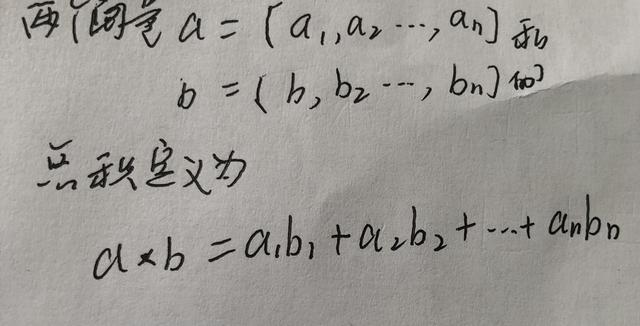 两个向量 a = [a₁,a₂…,aₙ] 和
b = [b, b₂…, bₙ] 的
点积定义为
a×b = a₁b₁+a₂b₂+…+aₙbₙ